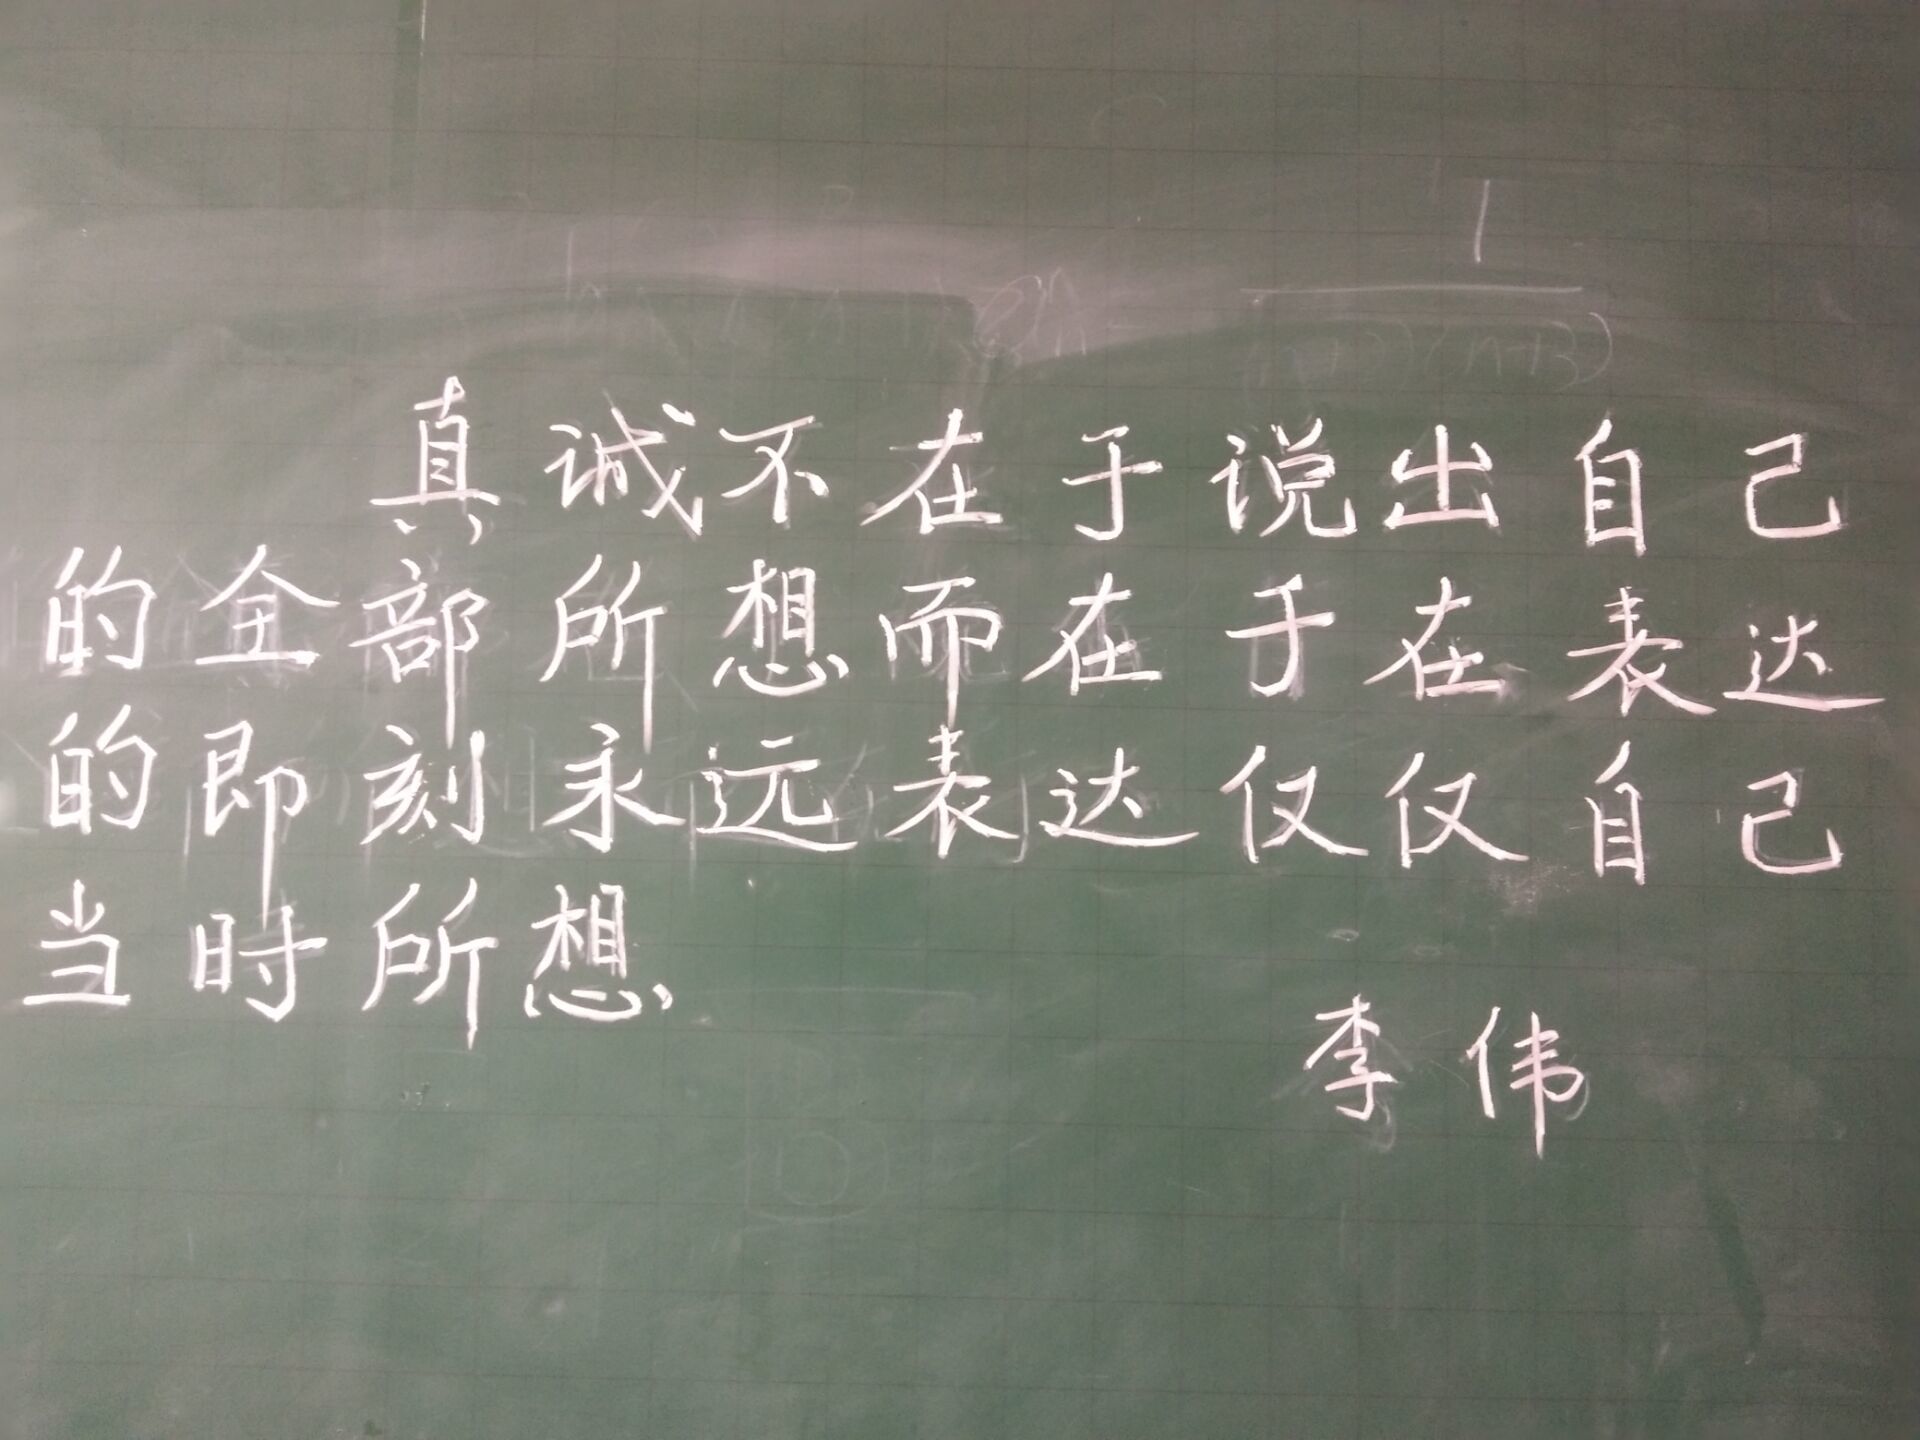 真诚不在于说出自己
的全部所想而在于在表达
的即刻永远表达仅仅自己
当时所想
李伟